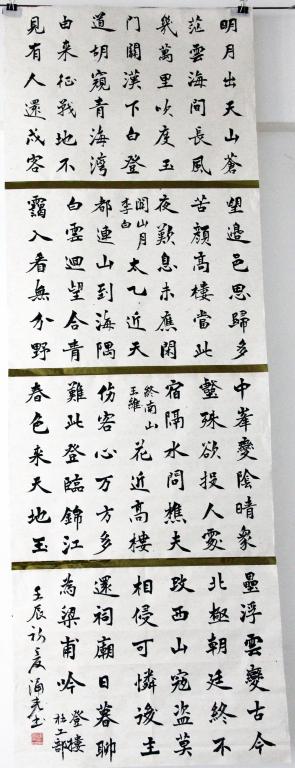 明月出天山蒼
茫雲海間長風
幾萬里吹度玉
門關漢下白登
道胡窺青海灣
由來征戰地不
見有人還戍客
望邊邑思歸多
苦顏高樓當此
夜歎息未應閑
關山月
李白
太乙近天
都連山到海隅
白雲迴望合青
靄入看無分野
中峯變陰晴衆
壑殊欲投人處
宿隔水問樵夫
終南山
王維
花近高樓
傷客心万方多
難此登臨錦江
春色来天地玉
壘浮雲變古今
北極朝廷終不
改西山寇盜莫
相侵可憐後主
還祠廟日暮聊
為梁甫吟
登樓
杜工部
壬辰初夏海光